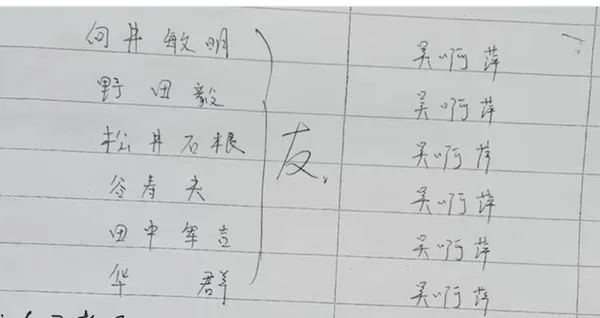 向井敏明 吴啊萍
野田毅 吴啊萍
松井石根 吴啊萍
友,
谷寿夫 吴啊萍
田中军吉 吴啊萍
华群 吴啊萍